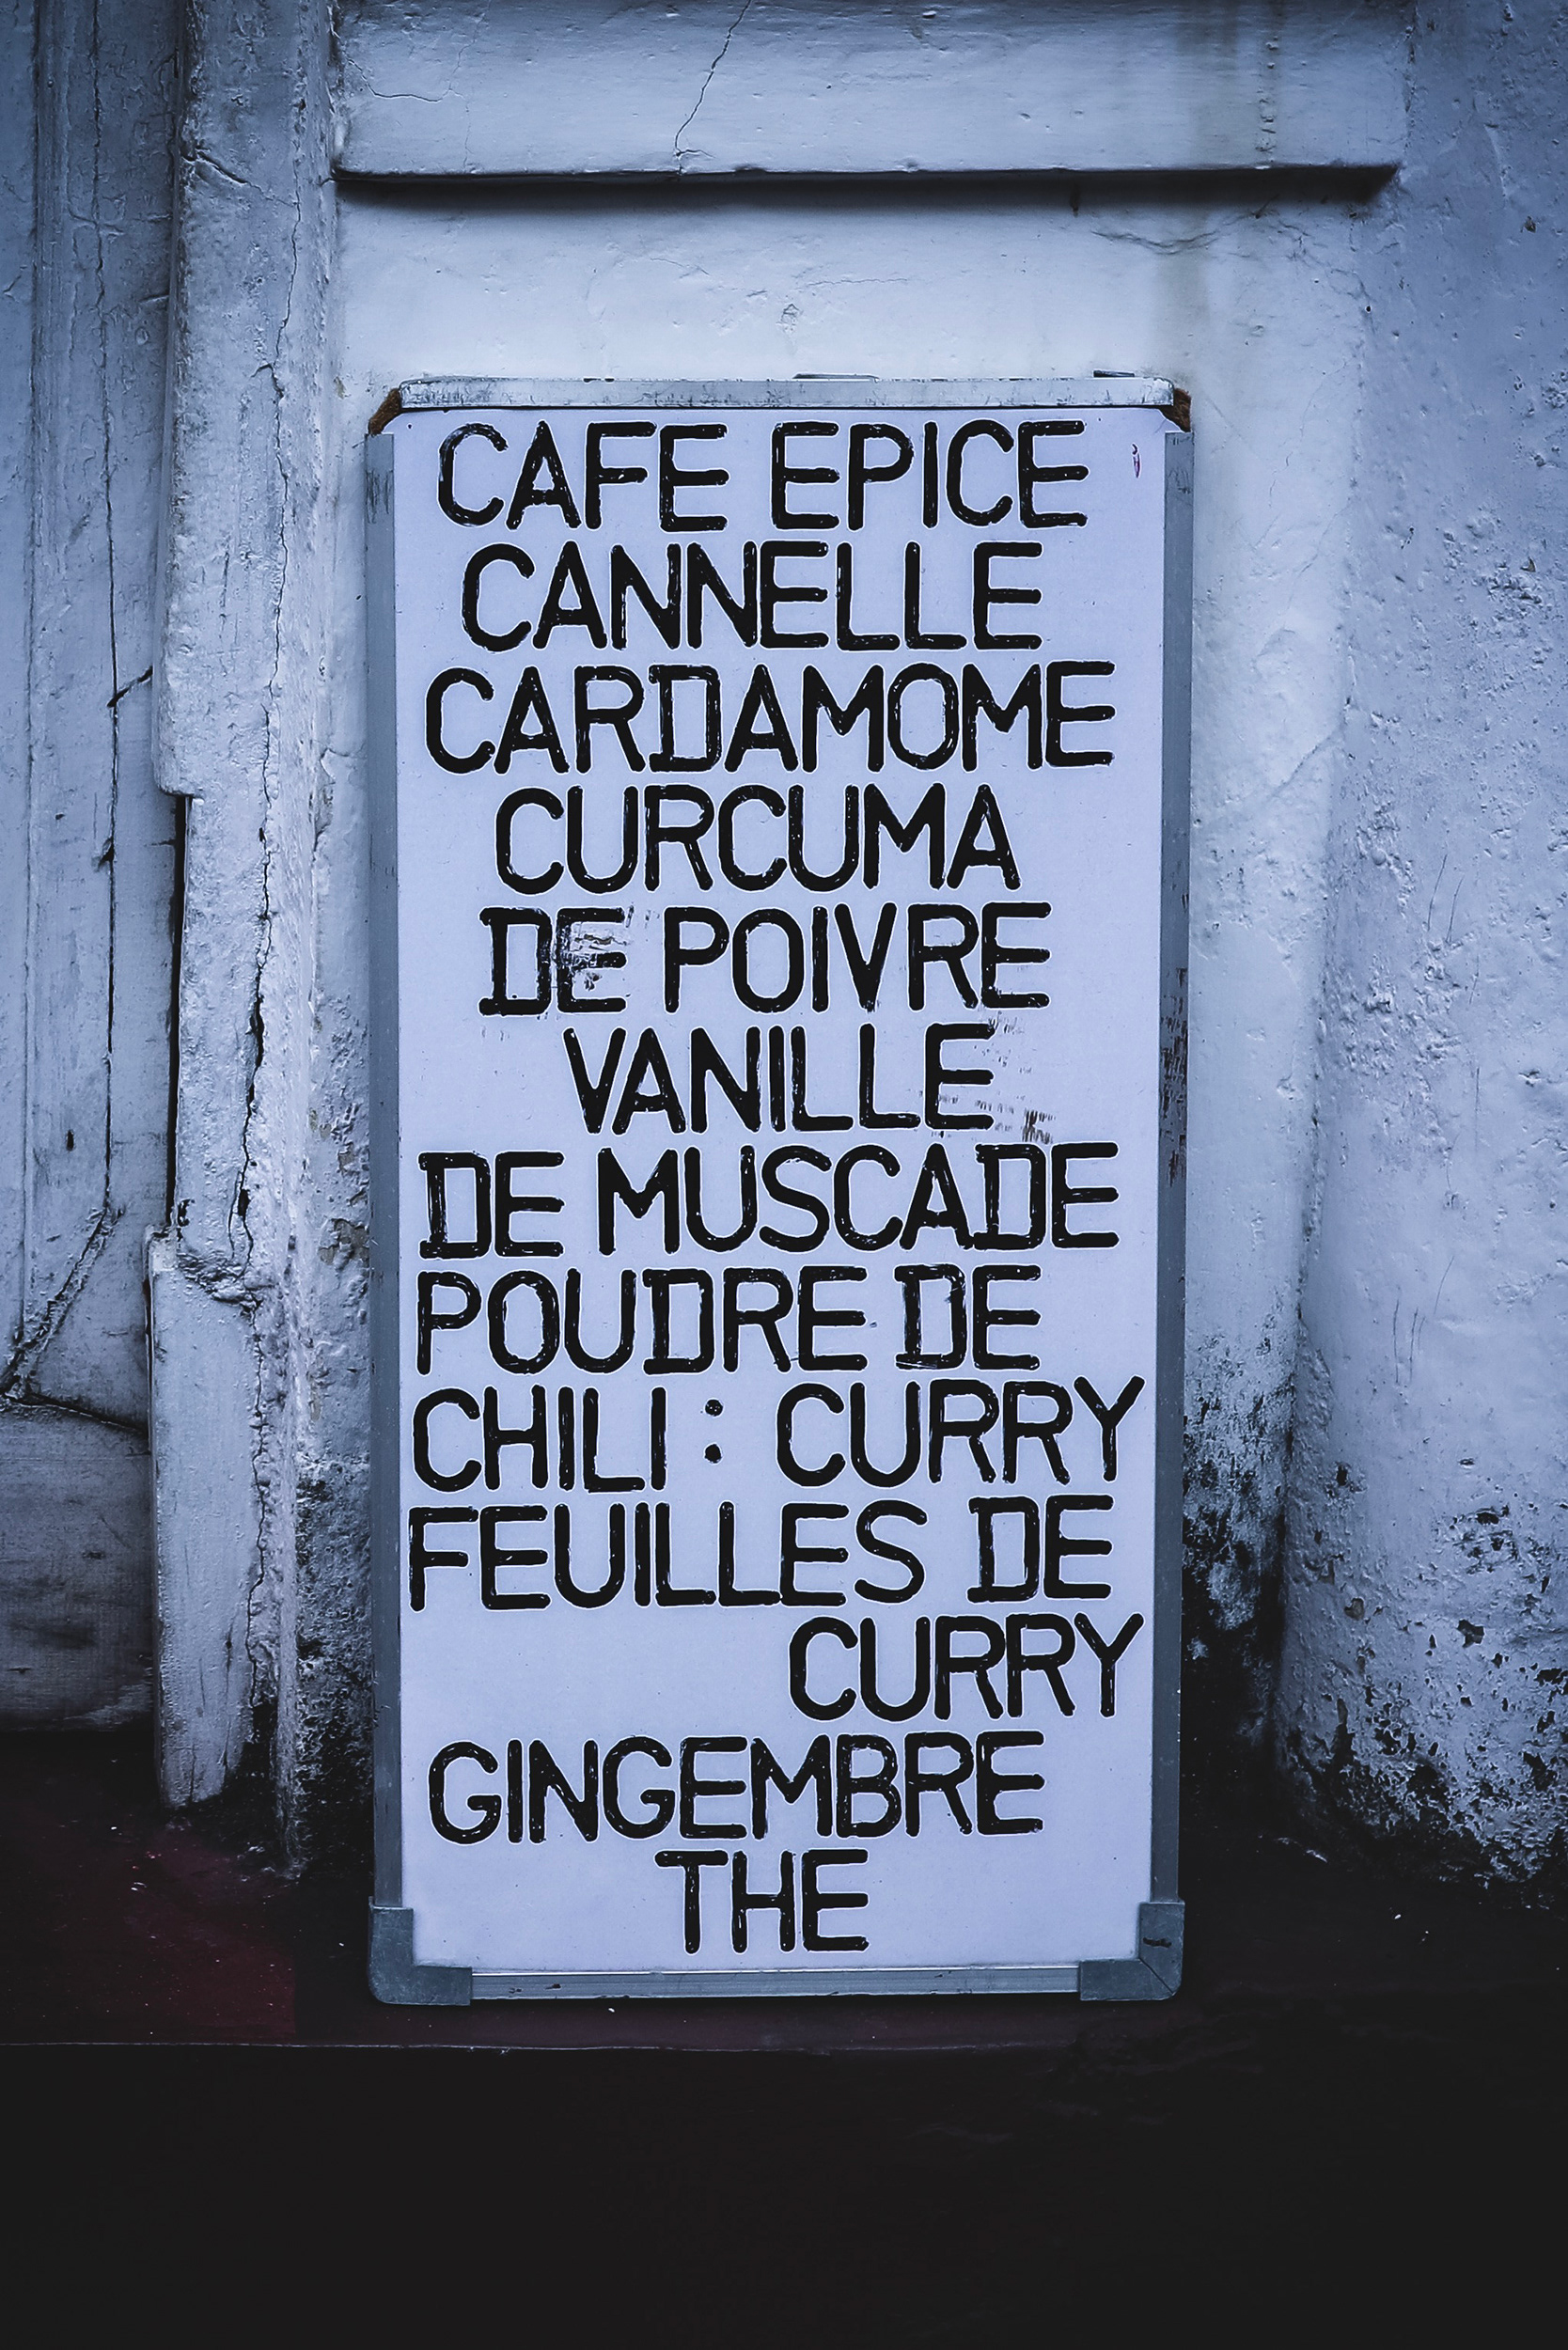 CAFE EPICE
CANNELLE
CARDAMOME
CURCUMA
DE POIVRE
VANILLE
DE MUSCADE
POUDRE DE
CHILI : CURRY
FEUILLES DE
CURRY
GINGEMBRE
THE